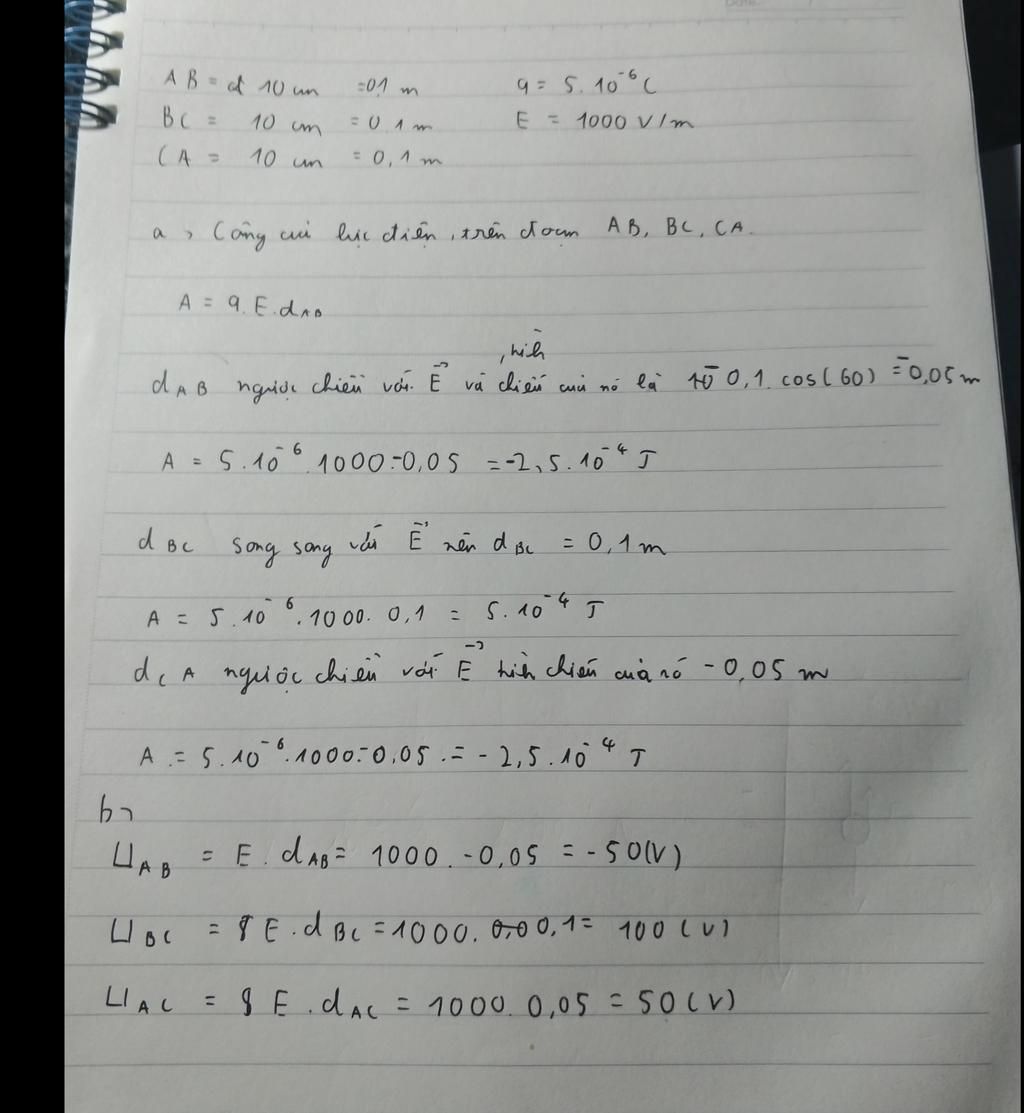 AB = d 10 cm = 0,1 m q = 5.10⁻⁶ C
BC = 10 cm = 0,1 m E = 1000 V/m
CA = 10 cm = 0,1 m
a, Công của lực điện, trên đoạn AB, BC, CA.
A = q.E.d_AB
, hình
d_AB ngược chiều với E⃗ và chiếu của nó là 0,1.cos(60) = -0,05 m
A = 5.10⁻⁶.1000.-0,05 = -2,5.10⁻⁴ J
d_BC song song với E⃗ nên d_BC = 0,1 m
A = 5.10⁻⁶.1000.0,1 = 5.10⁻⁴ J
d_CA ngược chiều với E⃗ hình chiếu của nó -0,05 m
A = 5.10⁻⁶.1000.-0,05 = -2,5.10⁻⁴ J
b,
U_AB = E.d_AB = 1000.-0,05 = -50(V)
U_BC = E.d_BC = 1000.0,1 = 100(V)
U_AC = E.d_AC = 1000.0,05 = 50(V)